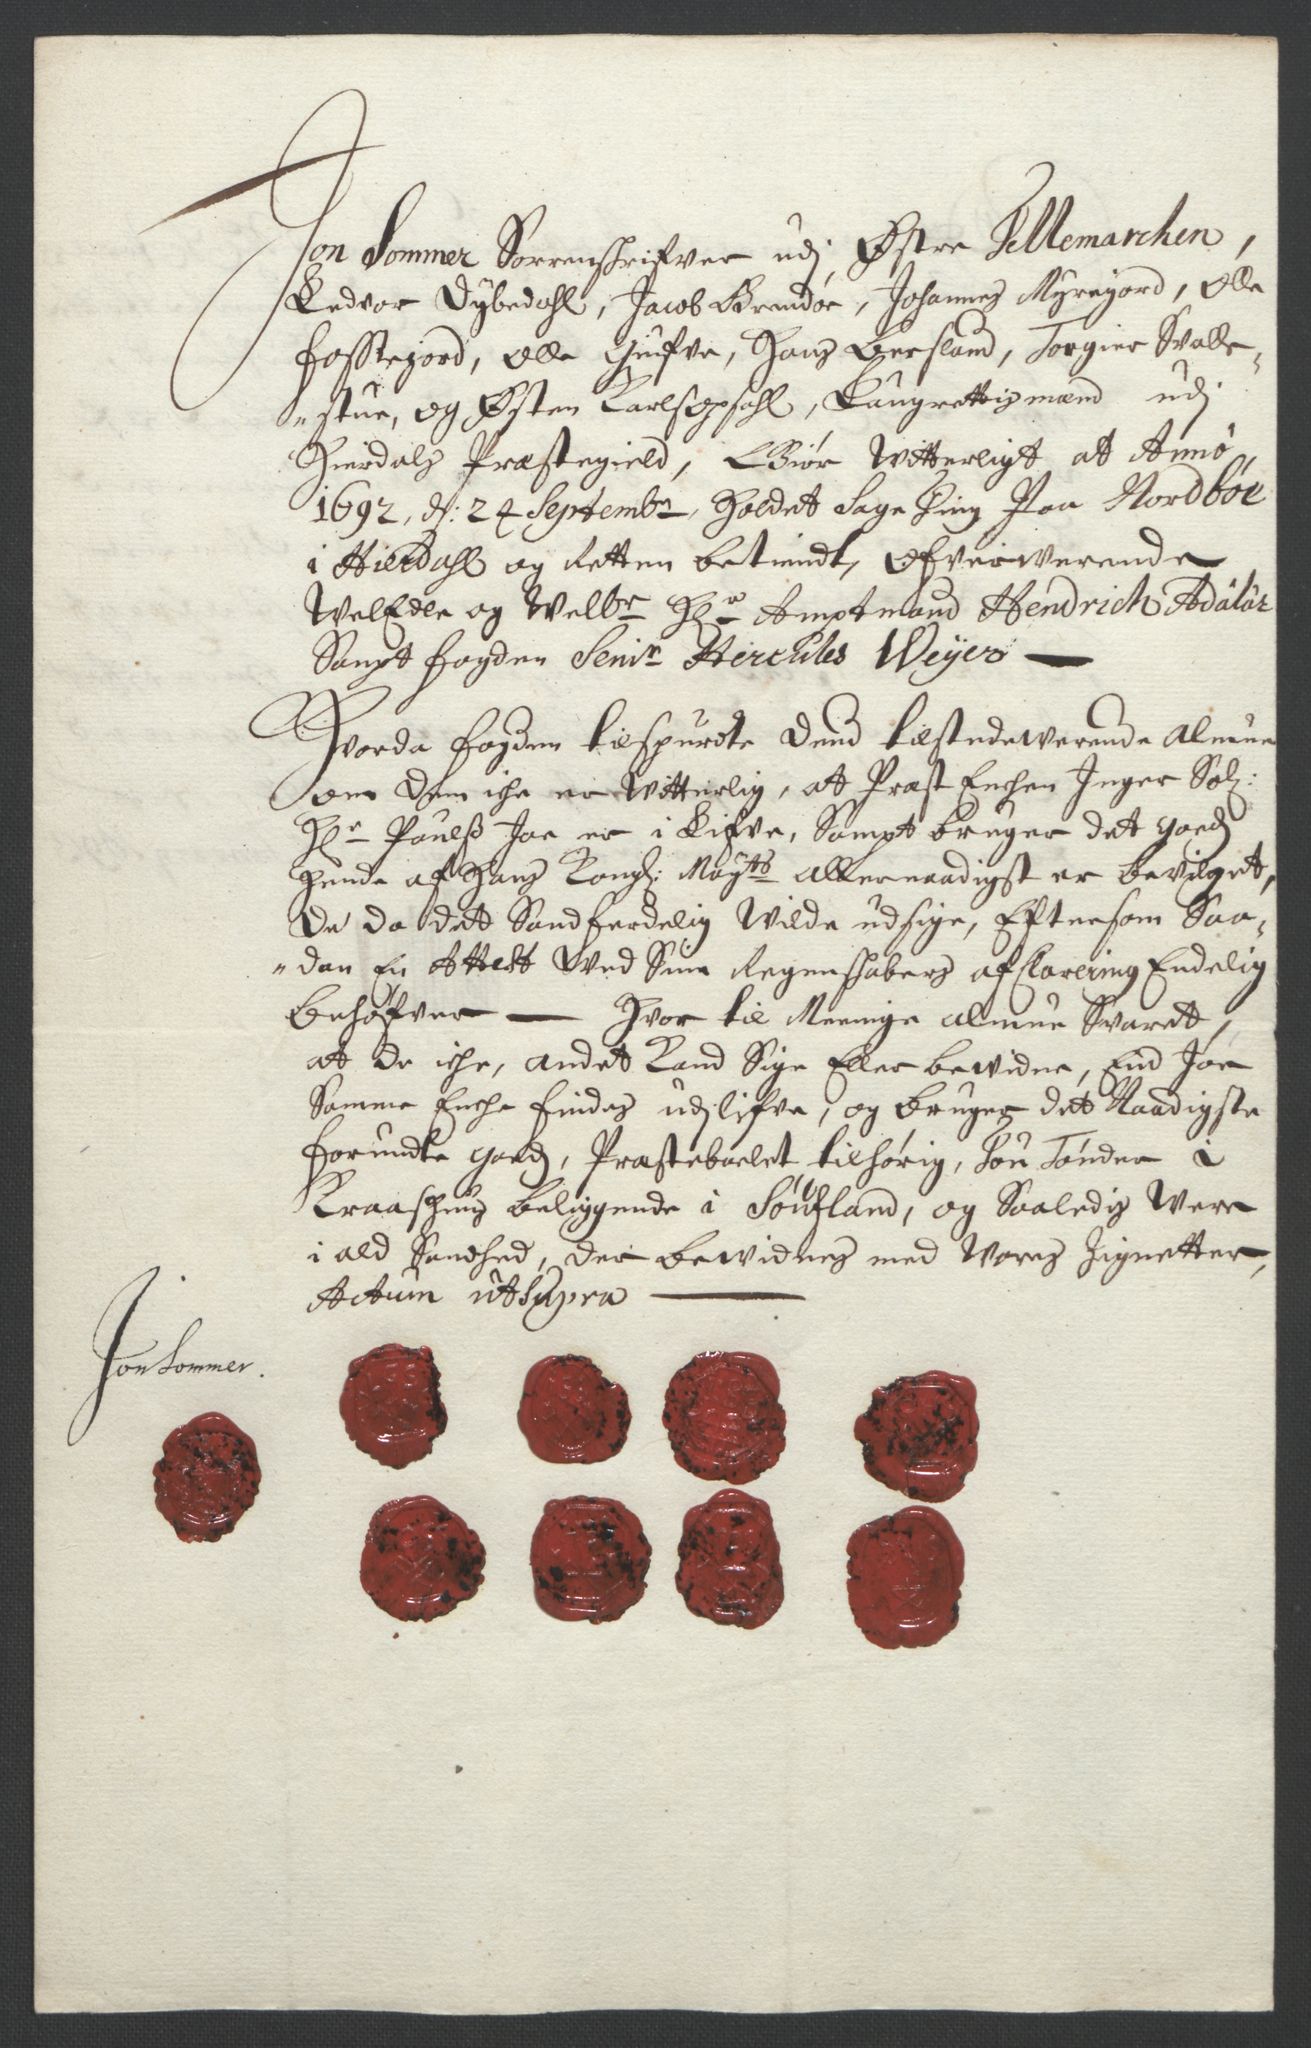 Jon Sommer Sorrenschrifver udj Østre Tellemarchen,
Ledvor Dybedahl, Jacob Brendøe, Johannes Myregord, Olle
Fosstegord, Olle Hufve, Hans Bersland, Torgier Svalle-
"stue, og Østen Karlsopsahl, Laugrettismænd udj
Hierdals Præstegield, Giør Witterligt at Anno
1692, d: 24 Septembr, Holdet Sage Ting Paa Nordbøe
i Hierdahl og Retten betiendt, Ofverwerende
WelEdle og Welbr Hr Amptmand Hendrich Adälär
Sampt Fogden Senir Hercules Weyer —
Hvorda Fogden tilspurdte Dend tilstedewerende Almue
om Dem iche er Witterlig, at Præst Enchen Inger Sel:
Hr Pouls Joe er i Lifve, Sampt bruger det goeds
hende af Hans Kongl: Maytts allernaadigst er bevilget,
De da det Sandferdelig Wilde udsige, Eftersom Saa-
"dan En Attest Ved Sine Regenschabers afClarering Endelig
behøfver — Hvor til Meenige almue Svaret,
at de iche, andet Kand Sige Eller bewidne, End Joe
Samme Enche findes udj lifve, og bruger det Naadigste
forundte goeds, Præsteboelet tilhørig, Tou Tønder i
Kraashuus beliggende i Soufland, og Saaledis Were
i ald Sandhed, der bewidnes med Wores Zignetter,
Actum ut Supra —
Jon Sommer.